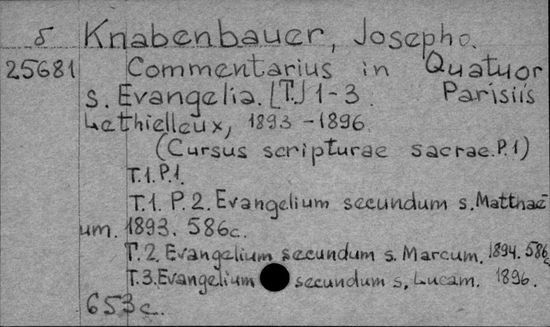 δ Knabenbauer, Josepho.
25681 Commentarius in Quatuor
s. Evangelia. [T.] 1-3. Parisiis
Lethielleux, 1893-1896
(Cursus scripturae sacrae. P. 1)
T. 1. P. 1.
T. 1. P. 2. Evangelium secundum s. Matthaē
um. 1893. 586c.
T. 2. Evangelium secundum s. Marcum. 1894. 586c
T. 3. Evangelium secundum s. Lucam. 1896.
653c.